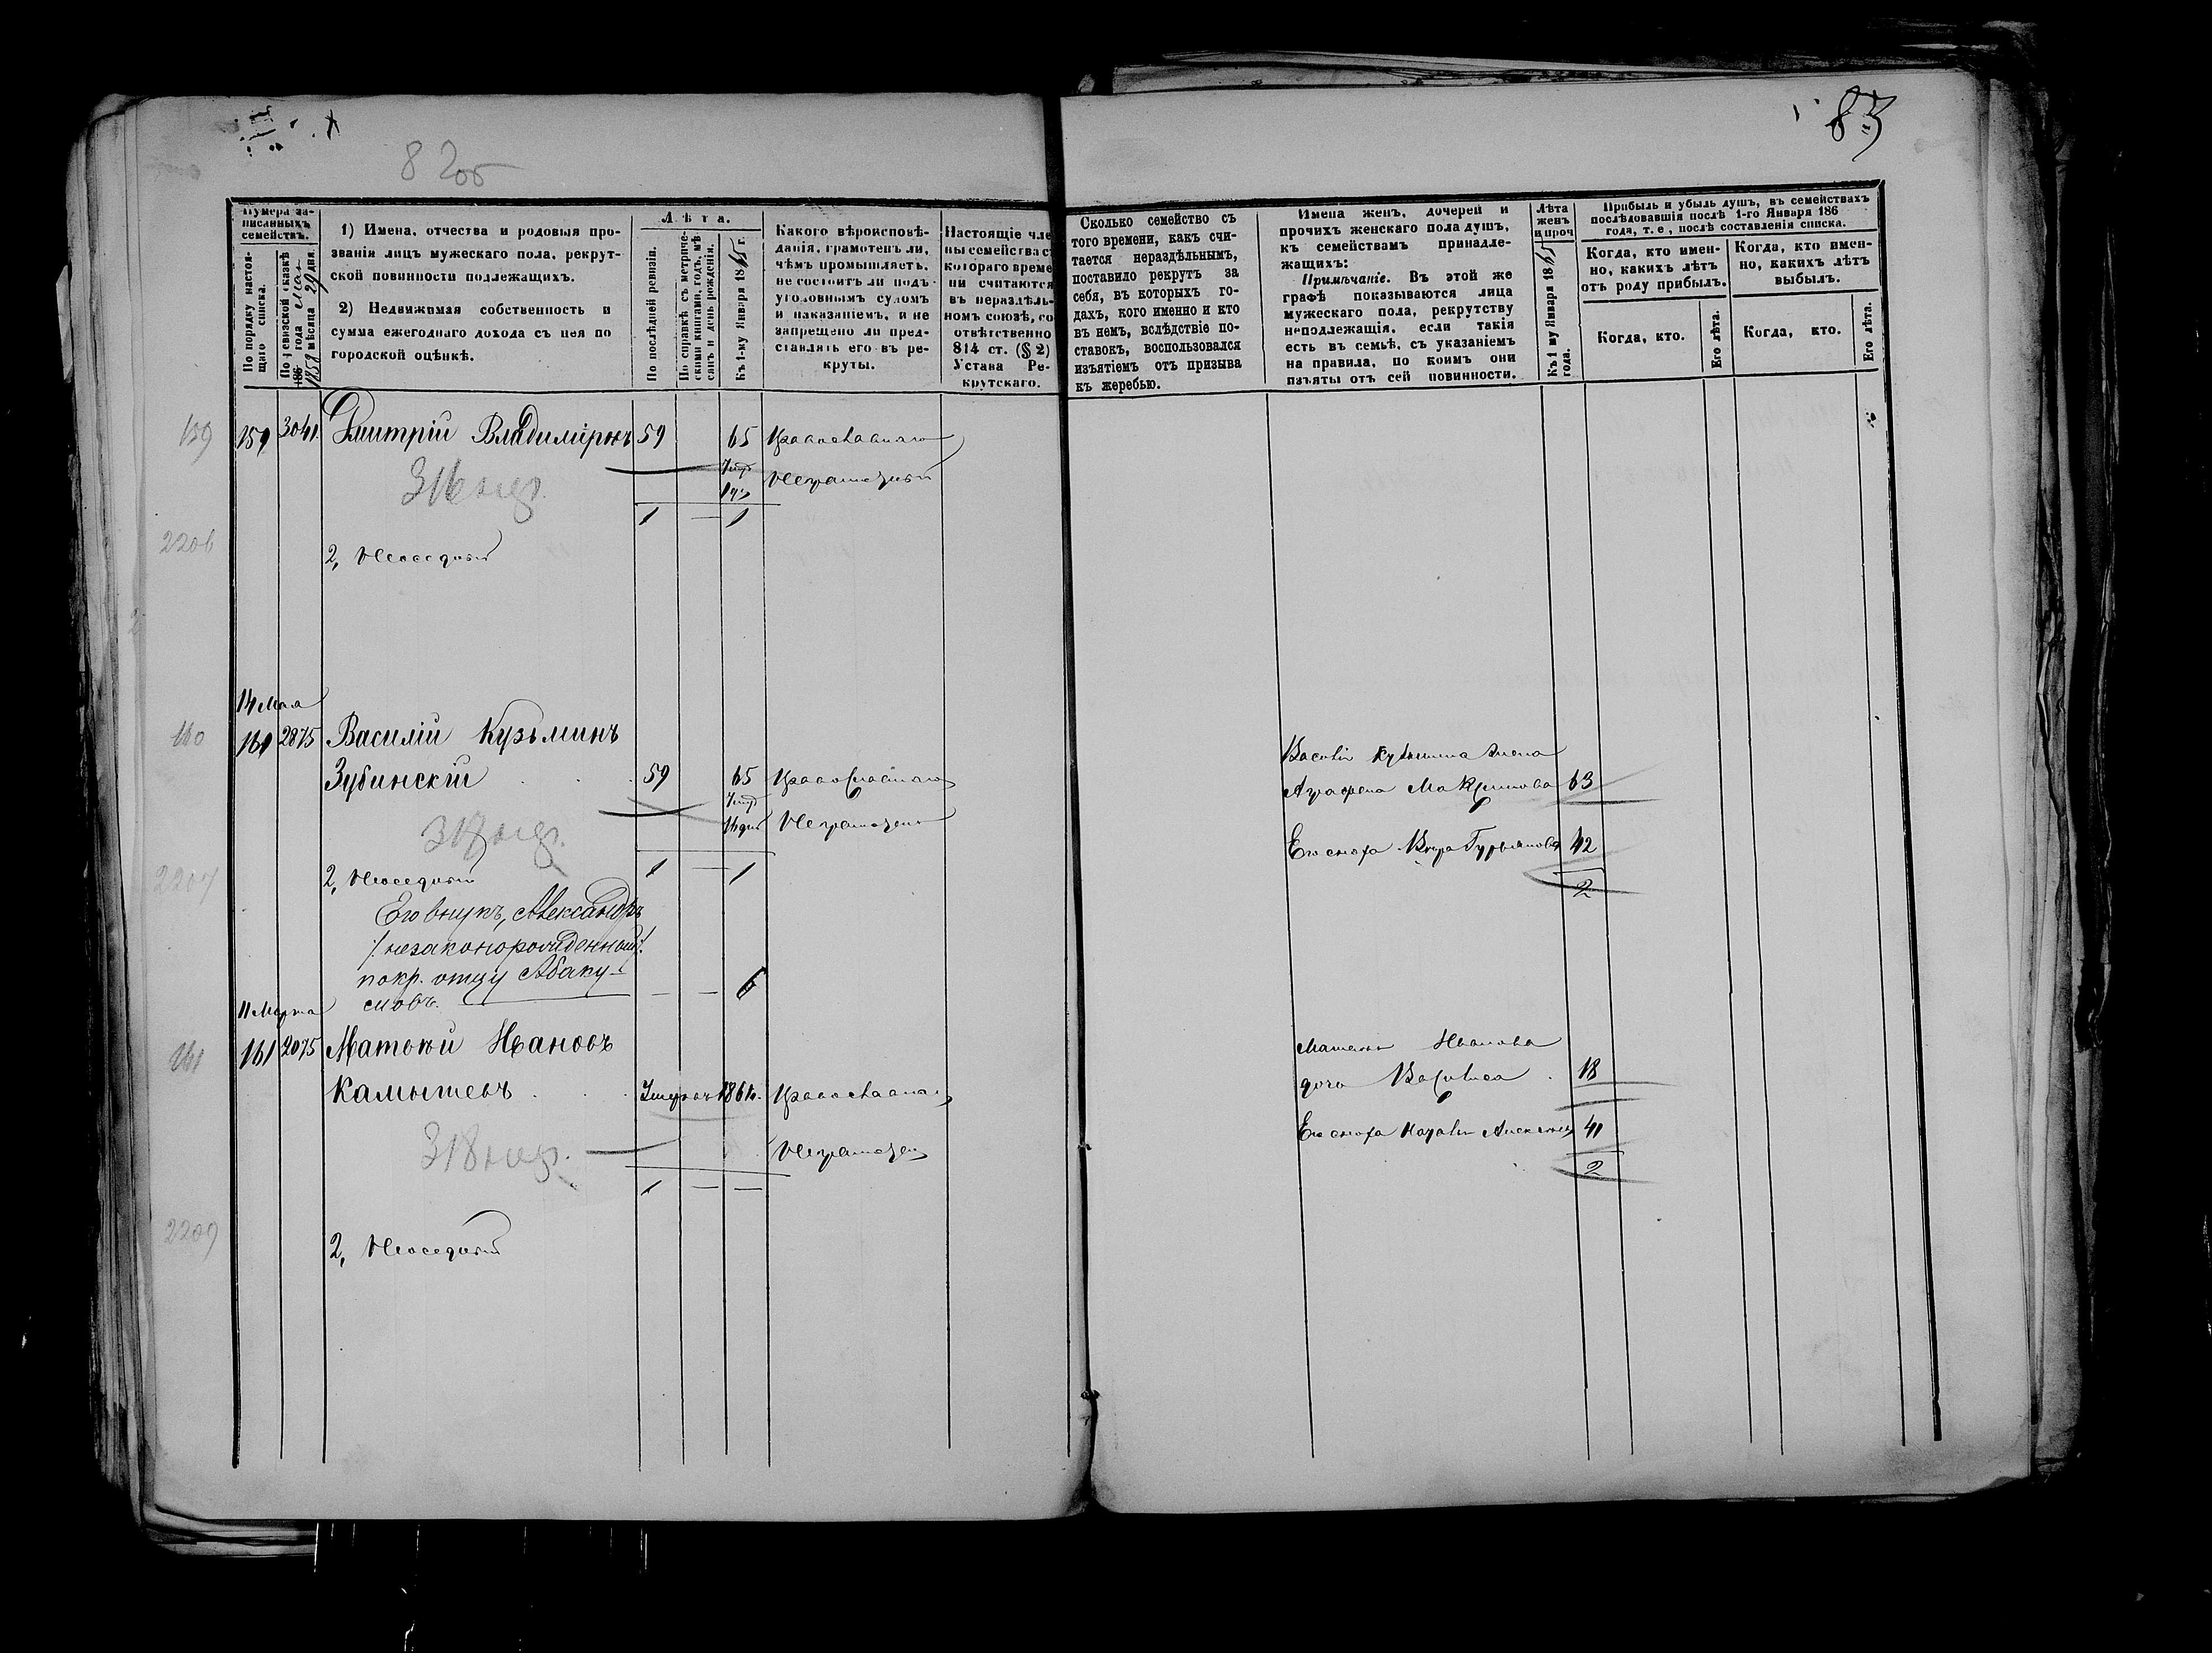 82об
83
Нумера записанныхъ семействъ.
По порядку настоящаго списка.
По ревизской сказкѣ 1858 года мѣсяца 29 дня.
1) Имена, отчества и родовыя прозванія лицъ мужескаго пола, рекрутской повинности подлежащихъ.
2) Недвижимая собственность и сумма ежегоднаго дохода съ нея по городской оцѣнкѣ.
Лѣта.
По послѣдней ревизіи.
По справкѣ съ метрическими книгами, годъ, мѣсяцъ и день рожденія.
Къ 1-му Января 1865 г.
Какого вѣроисповѣданія, грамотенъ ли, чѣмъ промышляетъ, не состоитъ ли подъ уголовнымъ судомъ и наказаніемъ, и не запрещено ли представлять его въ рекруты.
Настоящіе чле
ны семейства с
котораго време
ни считаются
въ нераздѣль-
номъ союзѣ, со
отвѣтственно
814 ст. (§ 2)
Устава Ре-
крутскаго.
Сколько семейство съ
того времени, какъ счи-
тается нераздѣльнымъ,
поставило рекрутъ за
себя, въ которыхъ го-
дахъ, кого именно и кто
въ немъ, вслѣдствіе по-
ставокъ, воспользовался
изъятіемъ отъ призыва
къ жеребью.
Имена женъ, дочерей и
прочихъ женскаго пола душъ,
къ семействамъ принадле-
жащихъ:
Примѣчаніе. Въ этой же
графѣ показываются лица
мужескаго пола, рекрутству
неподлежащія, если такія
есть въ семьѣ, съ указаніемъ
на правила, по коимъ они
изъяты отъ сей повинности.
Лѣта женъ и проч
Къ 1 му Января 1865 года.
Прибыль и убыль душъ, въ семействахъ
послѣдовавшія послѣ 1-го Января 186
года, т. е., послѣ составленія списка.
Когда, кто имен-
но, какихъ лѣтъ
отъ роду прибылъ.
Когда, кто имен-
но, какихъ лѣтъ
выбылъ.
Когда, кто.
Его лѣта.
Когда, кто.
Его лѣта.
159 159 3041 Дмитрій Владиміровъ 59 65 Православнаго
Неграмотный
316
1 — 1
2206
2, Неоседлый
14 Мая
160 160 2875 Василій Кузьминъ
Зубинскій 59 65 Православнаго
Неграмотенъ
317
1 — 1
2207
2, Неоседлый
Его внукъ, Александръ
/: незаконорожденный :/
покр. отцу Абаку-
мовъ. — — 6
11 Марта
161 161 2075 Матвѣй Ивановъ
Камышевъ Умеръ въ 1864. Православнаго
Неграмотенъ
318
1 — —
2209
2, Неоседлый
Василія Кузьмина жена
Аграфена Макимова 63
Его сноха Вѣра Гурьянова 42
2
Матвѣя Иванова
дочь Василиса 18
Его сноха Наталья 41
2